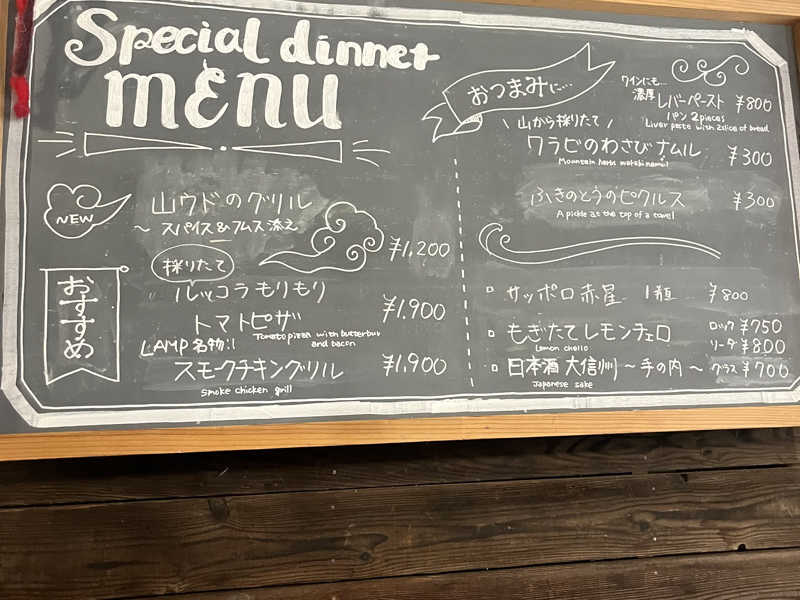 Special dinner
MENU
NEW
山ウドのグリル
〜 スパイス&フムス添え
¥1,200
おすすめ
採りたて
ルッコラもりもり
トマトピザ
¥1,900
Tomato pizza with butterbur
and bacon
LAMP名物!!
スモークチキングリル
¥1,900
Smoke chicken grill
おつまみに…
ワインにも…
濃厚 レバーペースト ¥800
パン 2pieces
Liver paste with 2slice of bread
\ 山から採りたて /
ワラビのわさびナムル ¥300
Mountain herbs wasabi namul
ふきのとうのピクルス ¥300
A pickle as the top of a towel
サッポロ赤星 1瓶 ¥800
もぎたてレモンチェロ ロック ¥750
Lemon chello ソーダ ¥800
日本酒 大信州 〜手の内〜 グラス ¥700
Japanese sake